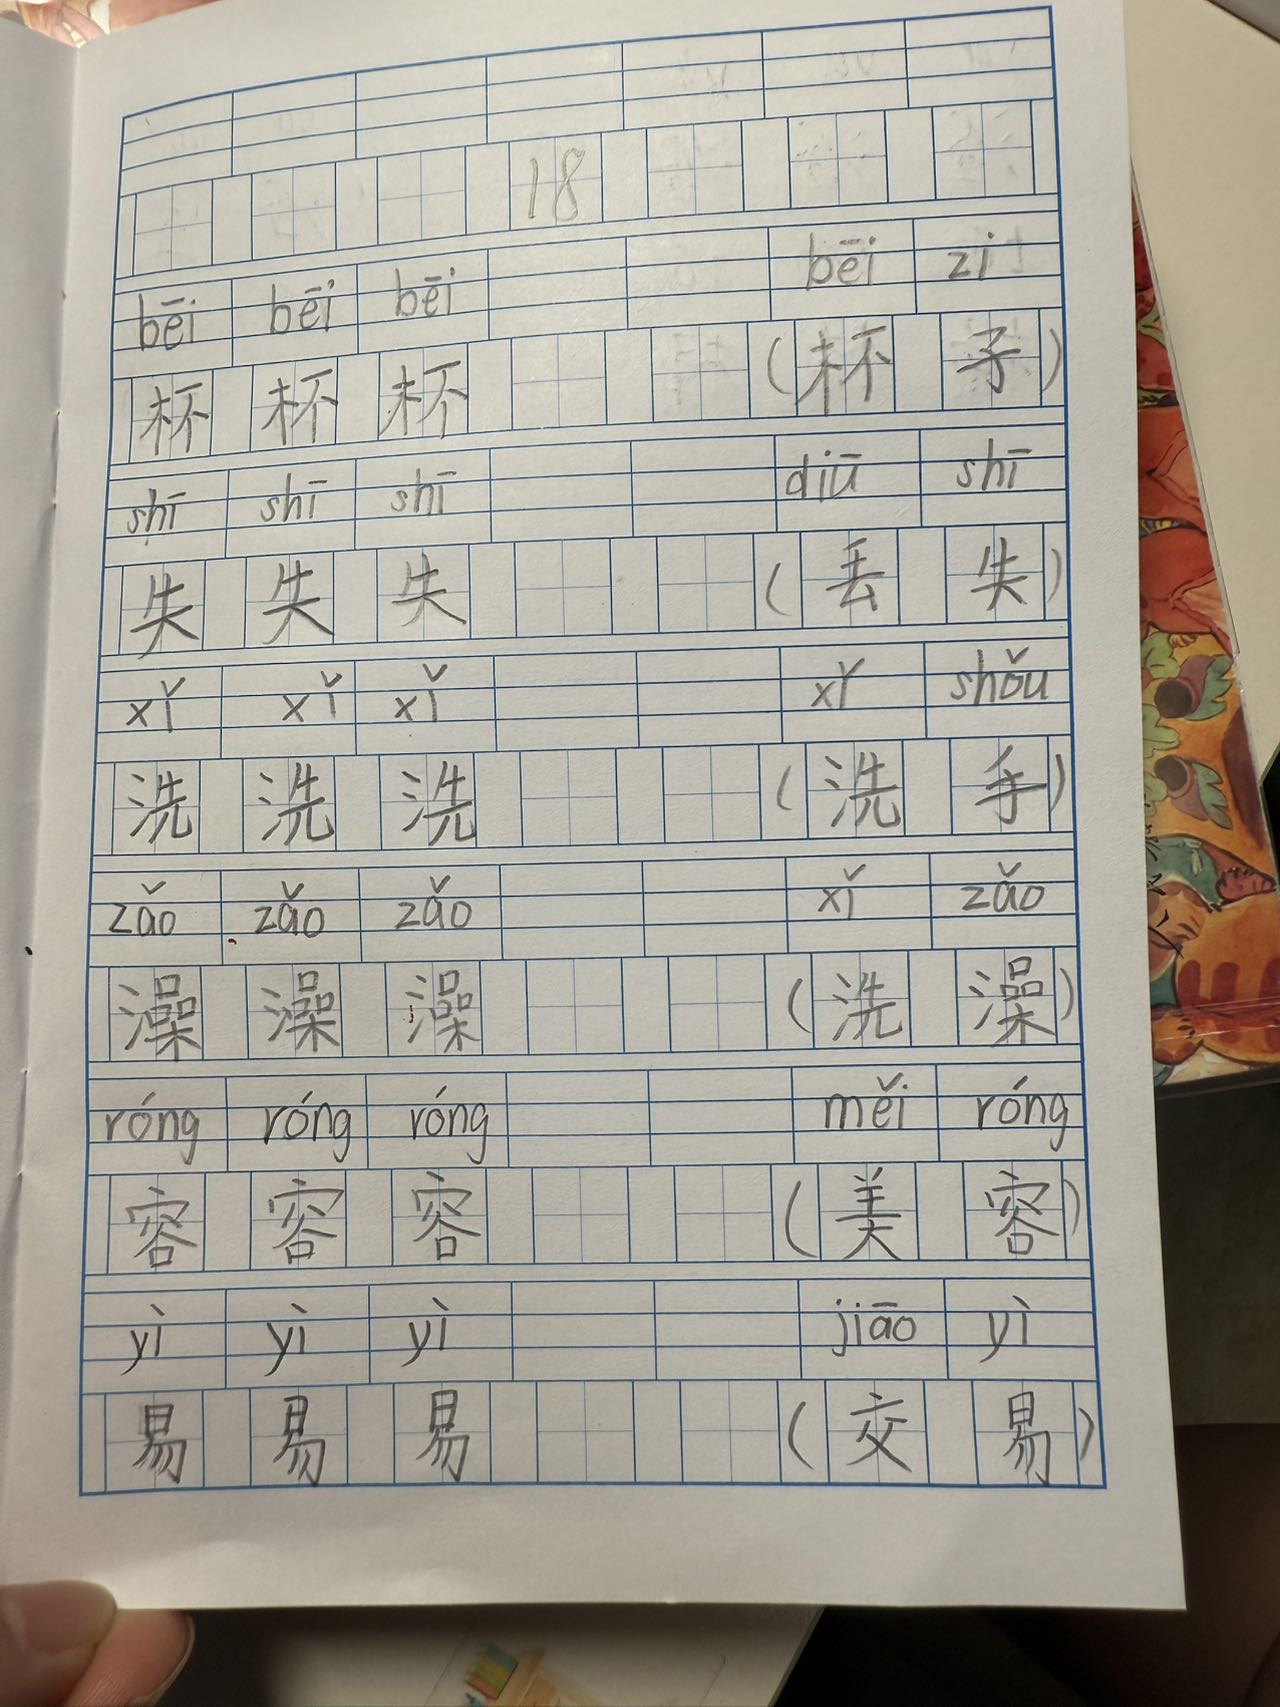 18
bēi bēi bēi bēi zi
杯 杯 杯 (杯 子)
shī shī shī diū shī
失 失 失 (丢 失)
xǐ xǐ xǐ xǐ shǒu
洗 洗 洗 (洗 手)
zǎo zǎo zǎo xǐ zǎo
澡 澡 澡 (洗 澡)
róng róng róng měi róng
容 容 容 (美 容)
yì yì yì jiāo yì
易 易 易 (交 易)